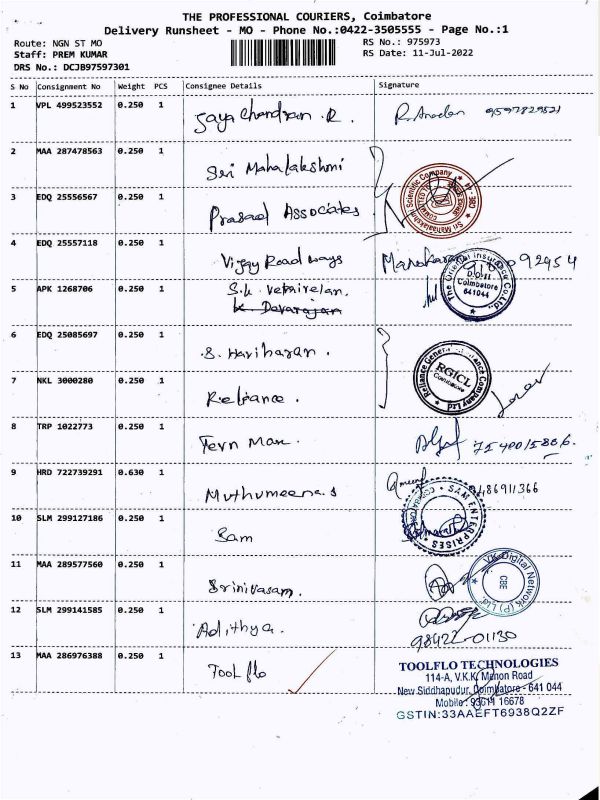 THE PROFESSIONAL COURIERS, Coimbatore
Delivery Runsheet - MO - Phone No.:0422-3505555 - Page No.:1
Route: NGN ST MO
RS No.: 975973
Staff: PREM KUMAR
RS Date: 11-Jul-2022
DRS No.: DCJB97597301
S No Consignment No Weight PCS Consignee Details Signature
1 VPL 499523552 0.250 1 Jaya Chandran .R.
2 MAA 287478563 0.250 1 Sri Mahalakshmi
3 EDQ 25556567 0.250 1 Prasad Associates
Sri Mahalakshmi Scientific Company
CBE
4 EDQ 25557118 0.250 1 Vijay Road ways
5 APK 1268706 0.250 1 S.k. vetrivelan.
k. Devarajan
The Oriental Insurance Co. Ltd.,
D.O-II
Coimbatore
641044
6 EDQ 25085697 0.250 1 S. Hariharan .
7 NKL 3000280 0.250 1 Reliance .
Reliance General Insurance Company Ltd
RGICL
Coimbatore
8 TRP 1022773 0.250 1
9 HRD 722739291 0.630 1 Muthumeena.s
10 SLM 299127186 0.250 1 Sam
SAM ENTERPRISES
11 MAA 289577560 0.250 1 Srinivasam.
VK Digital Network (P) Ltd.
CBE
12 SLM 299141585 0.250 1 Adithya.
98422-01130
13 MAA 286976388 0.250 1 Tool flo
TOOLFLO TECHNOLOGIES
114-A, V.K.K. Menon Road
New Siddhapudur, Coimbatore - 641 044
Mobile : 93611 16678
GSTIN:33AAEFT6938Q2ZF